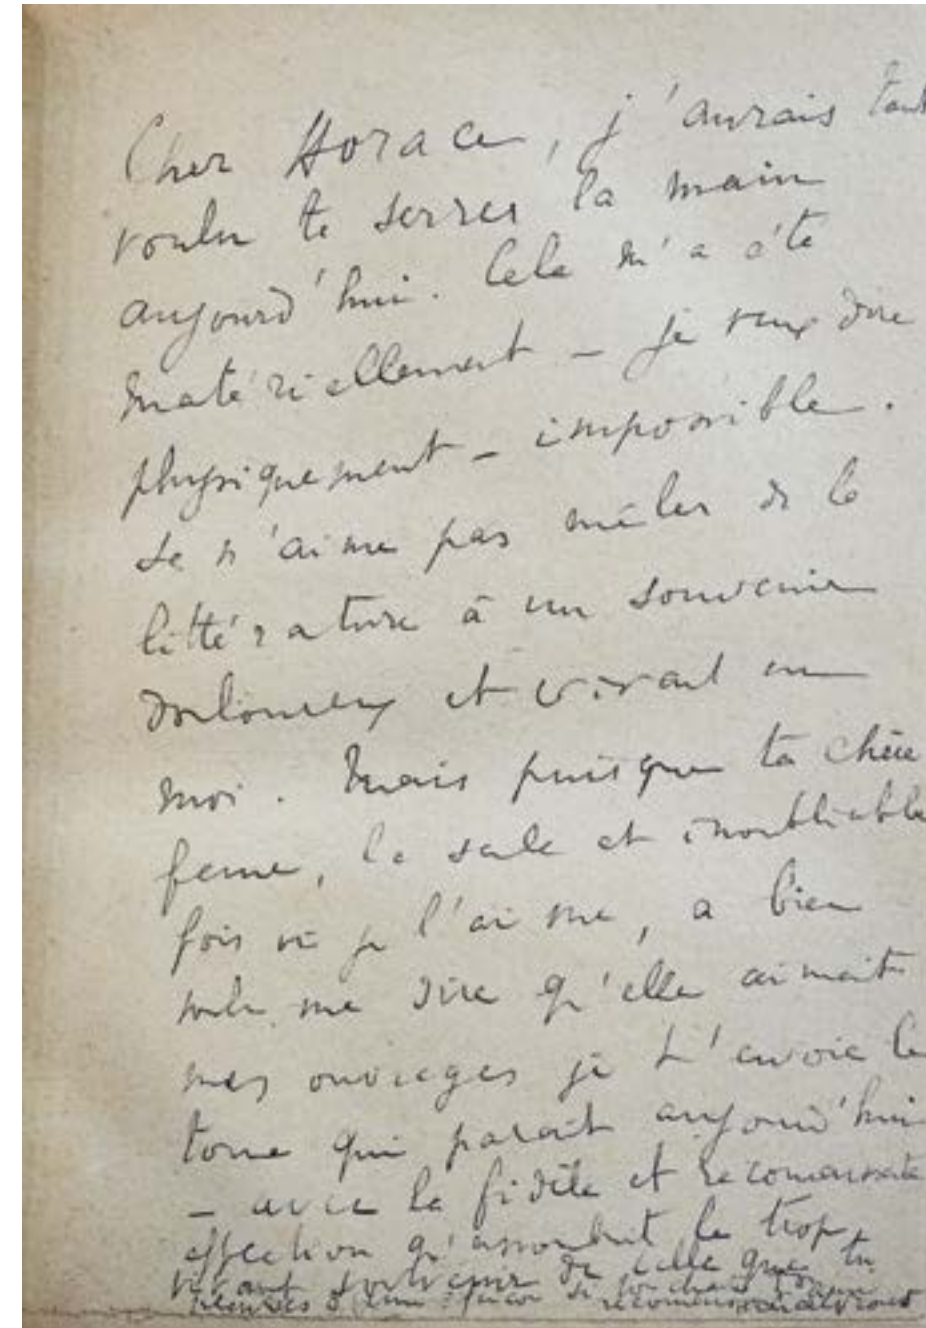 Cher Horace, j'aurais tant
voulu te serrer la main
aujourd'hui. Cela m'a été
matériellement – je veux dire
physiquement – impossible.
Je n'aime pas mêler de la
littérature à un souvenir
douloureux et vivant en
moi. Mais puisque ta chère
femme, la seule et inoubliable
fois où je l'ai vue, a bien
voulu me dire qu'elle aimait
mes ouvrages je t'envoie le
tome qui paraît aujourd'hui
– avec la fidèle et reconnaissante
affection qu'assombrit le trop
vivant souvenir de celle que tu
pleures d'une façon si touchante